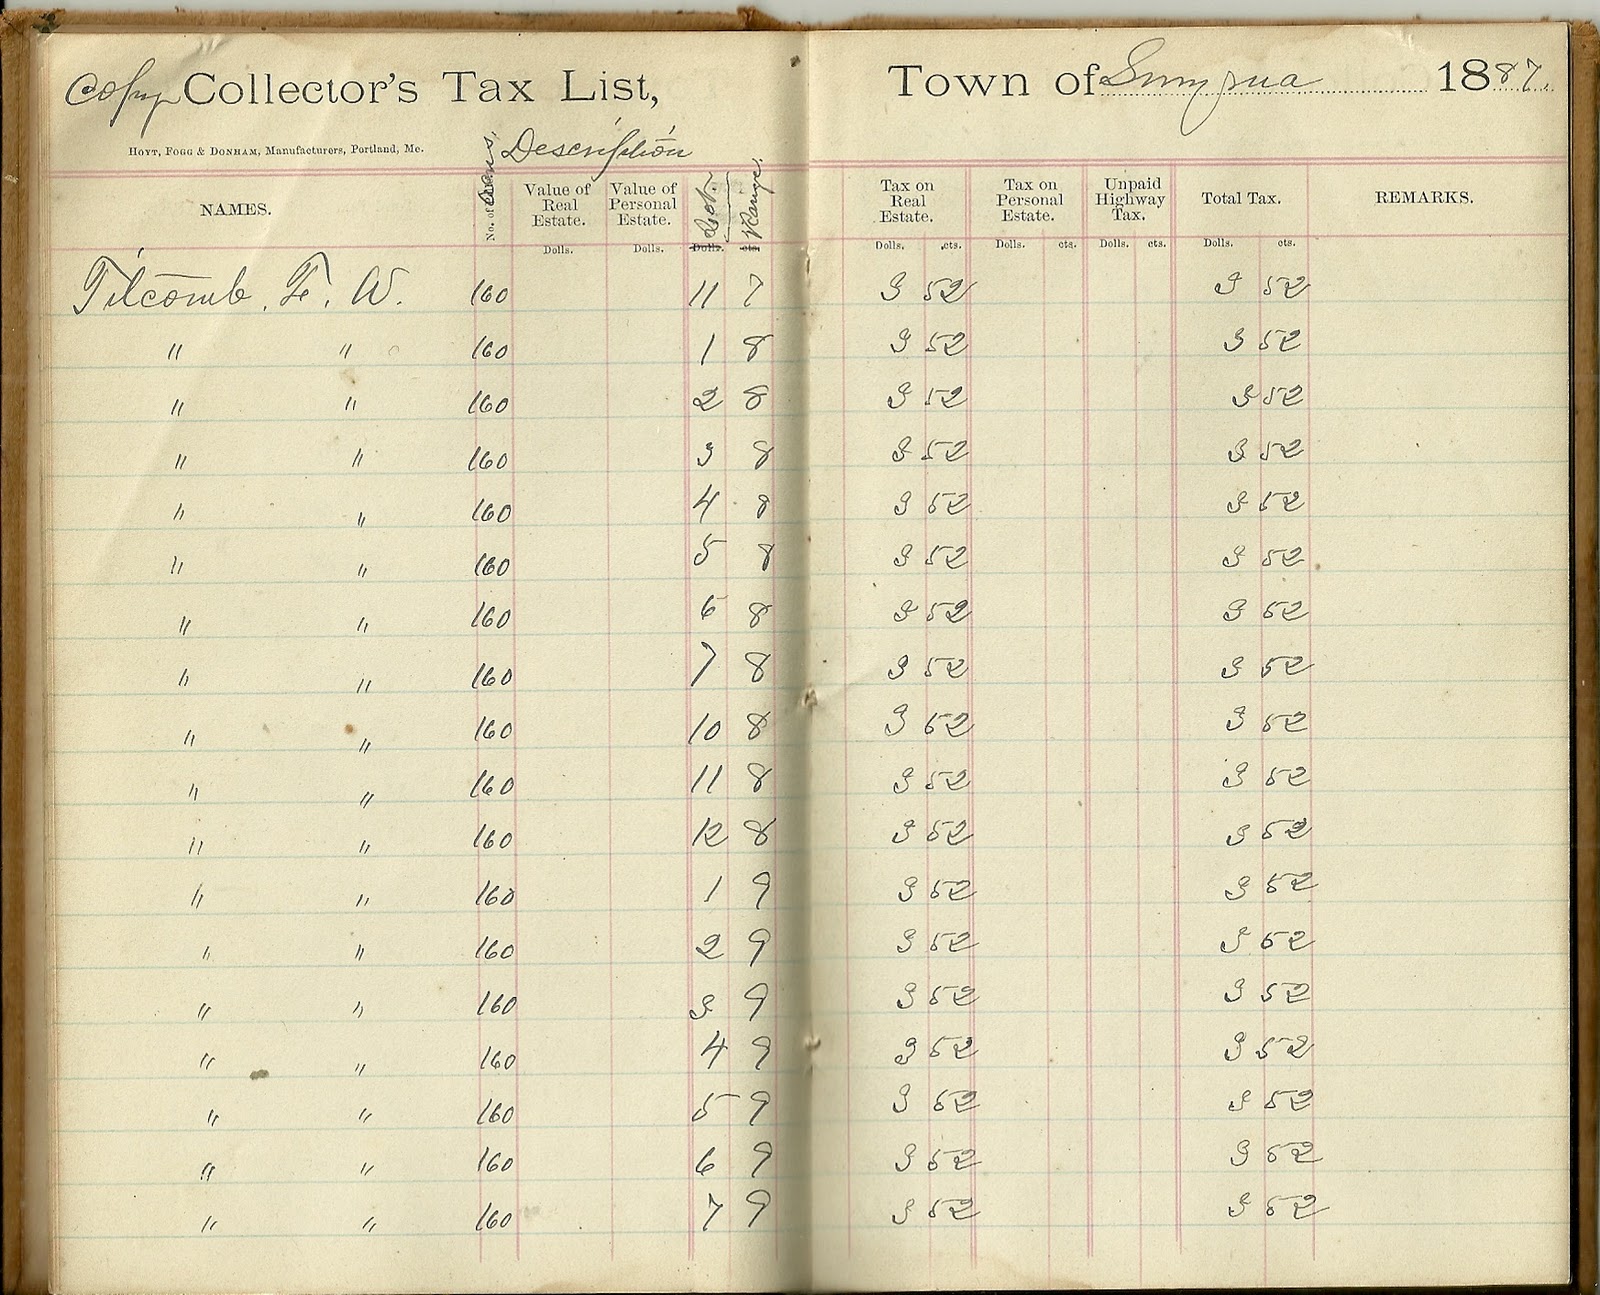 Copy Collector's Tax List, Town of Smyrna 1887.
Hoyt, Fogg & Donham, Manufacturers, Portland, Me. Description
NAMES. No. of Value of Real Estate. Value of Personal Estate. Lot. Range. Tax on Real Estate. Tax on Personal Estate. Unpaid Highway Tax. Total Tax. REMARKS.
Dolls. Dolls. Dolls. cts. Dolls. cts. Dolls. cts. Dolls. cts. Dolls. cts.
Titcomb, F. W. 160 11 7 3 52 3 52
" " 160 1 8 3 52 3 52
" " 160 2 8 3 52 3 52
" " 160 3 8 3 52 3 52
" " 160 4 8 3 52 3 52
" " 160 5 8 3 52 3 52
" " 160 6 8 3 52 3 52
" " 160 7 8 3 52 3 52
" " 160 10 8 3 52 3 52
" " 160 11 8 3 52 3 52
" " 160 12 8 3 52 3 52
" " 160 1 9 3 52 3 52
" " 160 2 9 3 52 3 52
" " 160 3 9 3 52 3 52
" " 160 4 9 3 52 3 52
" " 160 5 9 3 52 3 52
" " 160 6 9 3 52 3 52
" " 160 7 9 3 52 3 52